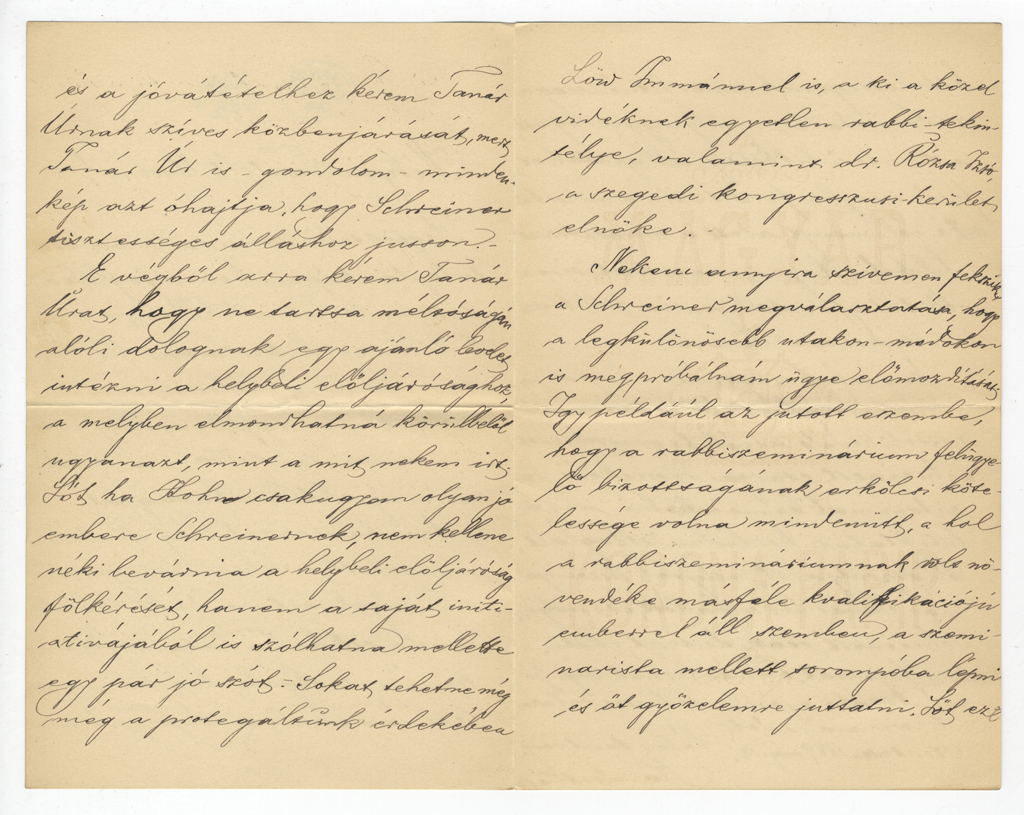 és a jóvátételhez kérem Tanár
Úrnak szíves közbenjárását, mert
Tanár Úr is – gondolom – minden-
kép azt óhajtja, hogy Schreiner
tisztességes álláshoz jusson. –
E végből arra kérem Tanár
Urat, hogy ne tartsa méltóságán
alóli dolognak egy ajánló levelet
intézni a helybeli elöljárósághoz,
a melyben elmondhatná körülbelül
ugyanazt, mint a mit nekem irt.
Sőt ha Kohn csakugyan olyan jó
embere Schreinernek, nem kellene
néki bevárnia a helybeli elöljáróság
fölkérését, hanem a saját initi-
ativájából is szólhatna mellette
egy pár jó szót. – Sokat tehetne még
még a protegáltunk érdekében
Löw Immánuel is, a ki a közel
vidéknek egyetlen rabbi-tekin-
télye, valamint dr. Rózsa Izsó,
a szegedi kongresszusi kerület
elnöke. –
Nekem annyira szívemen fekszik
a Schreiner megválasztatása, hogy
a legkülönösebb utakon-módokon
is megpróbálnám ügye előmozdítását.
Igy például az jutott eszembe,
hogy a rabbiszeminárium felügye-
lő bizottságának erkölcsi köte-
lessége volna mindenütt, a hol
a rabbiszemináriumnak volt nö-
vendéke másféle kvalifikációjú
emberrel áll szemben, a szemi-
narista mellett sorompóba lépni
és őt győzelemre juttatni. Sőt ezt